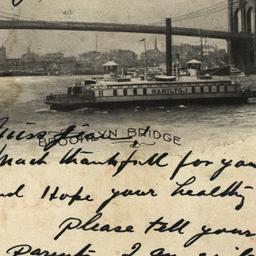 HAMILTON
BROOKLYN BRIDGE
Miss
Much thankfull for you
nd Hope your healthy
Please tell your
Parents, I am